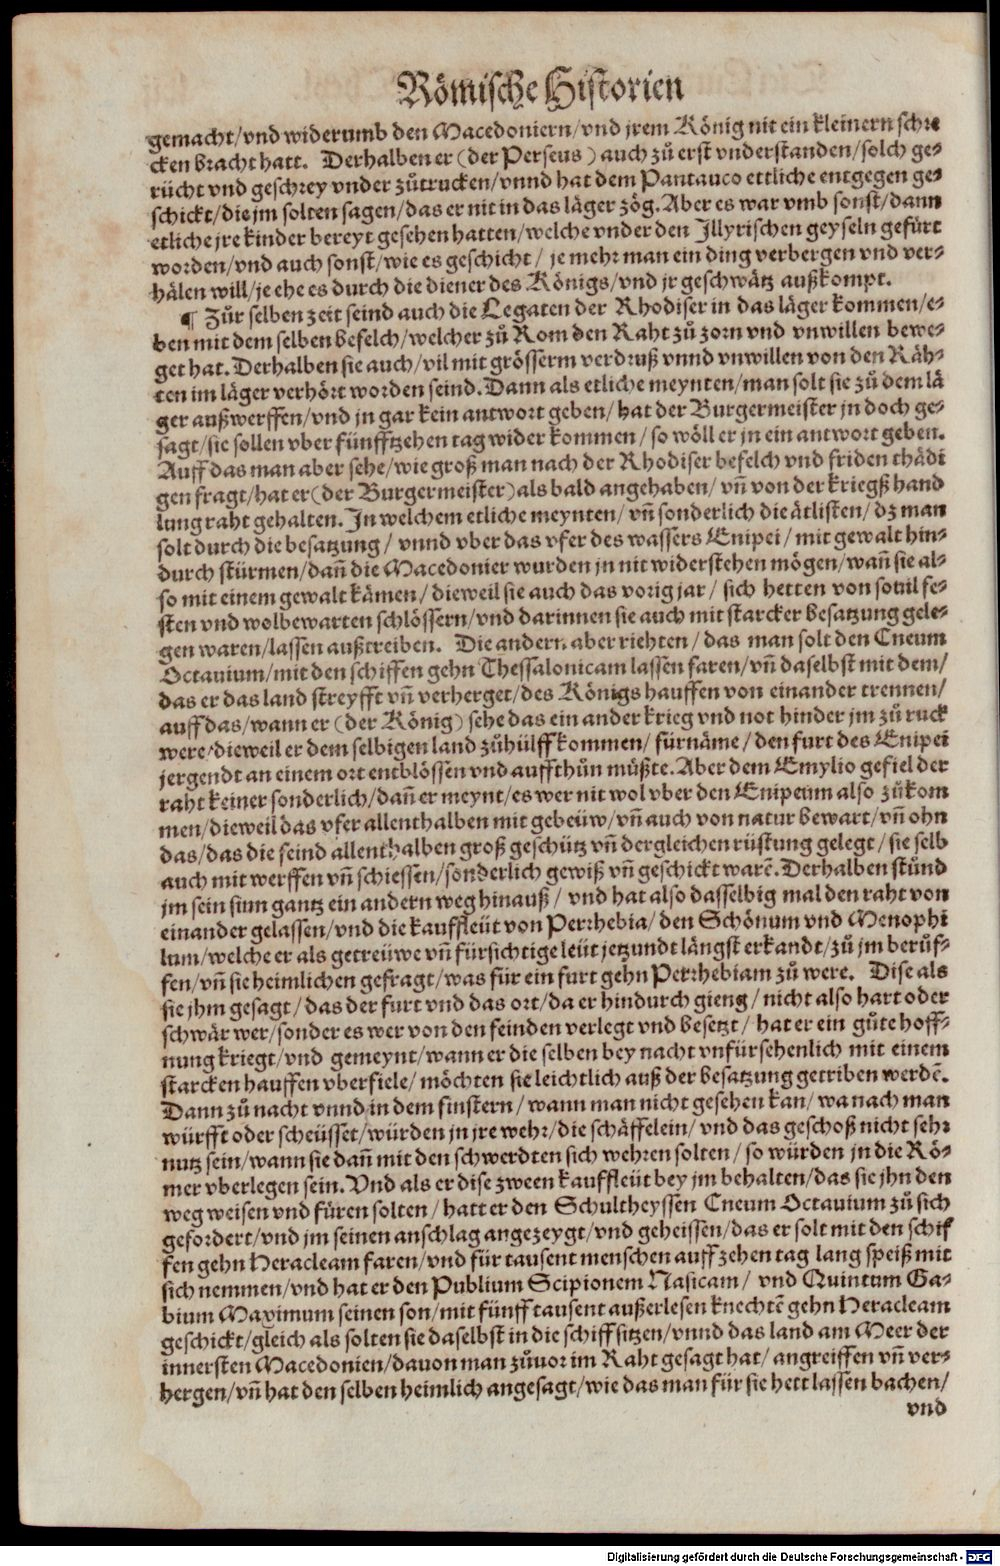 Römische Historien
gemacht/vnd widerumb den Macedoniern/vnd jrem König nit ein kleinern schre
cken bracht hatt. Derhalben er (der Perseus) auch zů erst vnderstanden/solch ge-
rücht vnd geschrey vnder zůtrucken/vnnd hat dem Pantauco ettliche entgegen ge-
schickt/die jm solten sagen/das er nit in das läger zög. Aber es war vmb sonst/dann
etliche jre kinder bereyt gesehen hatten/welche vnder den Jllyrischen geyseln gefürt
worden/vnd auch sonst/wie es geschicht/ je mehr man ein ding verbergen vnd ver-
hälen will/je ehe es durch die diener des Königs/vnd jr geschwätz außkompt.
¶ Zůr selben zeit seind auch die Legaten der Rhodiser in das läger kommen/e-
ben mit dem selben befelch/welcher zů Rom den Raht zů zorn vnd vnwillen bewe-
get hat. Derhalben sie auch/vil mit grösserm verdruß vnnd vnwillen von den Räh-
ten im läger verhört worden seind. Dann als etliche meynten/man solt sie zů dem lä
ger außwerffen/vnd jn gar kein antwort geben/ hat der Burgermeister jn doch ge-
sagt/sie sollen vber fünfftzehen tag wider kommen/ so wöll er jn ein antwort geben.
Auff das man aber sehe/wie groß man nach der Rhodiser befelch vnd friden thädi
gen fragt/hat er (der Burgermeister) als bald angehaben/ vñ von der kriegß hand
lung raht gehalten. Jn welchem etliche meynten/ vñ sonderlich die ätlisten/ dz man
solt durch die besatzung/ vnnd vber das vfer des wassers Enipei/ mit gewalt hin-
durch stürmen/dañ die Macedonier wurden jn nit widerstehen mögen/wañ sie al-
so mit einem gewalt kämen/ dieweil sie auch das vorig jar/ sich hetten von souil fe-
sten vnd wolbewarten schlössern/vnd darinnen sie auch mit starcker besatzung gele-
gen waren/lassen außtreiben. Die andern aber riehten/ das man solt den Cneum
Octauium/mit den schiffen gehn Thessalonicam lassen faren/vñ daselbst mit dem/
das er das land streyfft vñ verherget/des Königs hauffen von einander trennen/
auff das/wann er (der König) sehe das ein ander krieg vnd not hinder jm zů ruck
were/dieweil er dem selbigen land zůhülff kommen/ fürnäme/ den furt des Enipei
jergendt an einem ort entblössen vnd auffthůn müßte. Aber dem Emylio gefiel der
raht keiner sonderlich/dañ er meynt/es wer nit wol vber den Enipeum also zůkom
men/dieweil das vfer allenthalben mit gebeüw/vñ auch von natur bewart/vñ ohn
das/das die feind allenthalben groß geschütz vñ dergleichen rüstung gelegt/sie selb
auch mit werffen vñ schiessen/sonderlich gewiß vñ geschickt warẽ. Derhalben stůnd
jm sein sinn gantz ein andern weg hinauß/ vnd hat also dasselbig mal den raht von
einander gelassen/vnd die kauffleüt von Perrhebia/ den Schönum vnd Menophi
lum/welche er als getreüwe vñ fürsichtige leüt jetzundt längst erkandt/zů jm berüf-
fen/vñ sie heimlichen gefragt/was für ein furt gehn Perrhebiam zů were. Dise als
sie jhm gesagt/das der furt vnd das ort/da er hindurch gieng/ nicht also hart oder
schwär wer/sonder es wer von den feinden verlegt vnd besetzt/ hat er ein gůte hoff-
nung kriegt/vnd gemeynt/wann er die selben bey nacht vnfürsehenlich mit einem
starcken hauffen vberfiele/ möchten sie leichtlich auß der besatzung getriben werdẽ.
Dann zů nacht vnnd in dem finstern/ wann man nicht gesehen kan/ wa nach man
würfft oder scheüsset/würden jn jre wehr/die schäffelein/ vnd das geschoß nicht sehr
nutz sein/wann sie dañ mit den schwerdten sich wehren solten/ so würden jn die Rö-
mer vberlegen sein. Vnd als er dise zween kauffleüt bey jm behalten/das sie jhn den
weg weisen vnd füren solten/ hatt er den Schultheyssen Cneum Octauium zů sich
gefordert/vnd jm seinen anschlag angezeygt/vnd geheissen/das er solt mit den schif
fen gehn Heracleam faren/vnd für tausent menschen auff zehen tag lang speiß mit
sich nemmen/vnd hat er den Publium Scipionem Nasicam/ vnd Quintum Ga-
bium Maximum seinen son/mit fünff tausent außerlesen knechtẽ gehn Heracleam
geschickt/gleich als solten sie daselbst in die schiff sitzen/vnnd das land am Meer der
innersten Macedonien/dauon man zůuor im Raht gesagt hat/ angreiffen vñ ver-
hergen/vñ hat den selben heimlich angesagt/wie das man für sie hett lassen bachen/
vnd
Digitalisierung gefördert durch die Deutsche Forschungsgemeinschaft - DFG